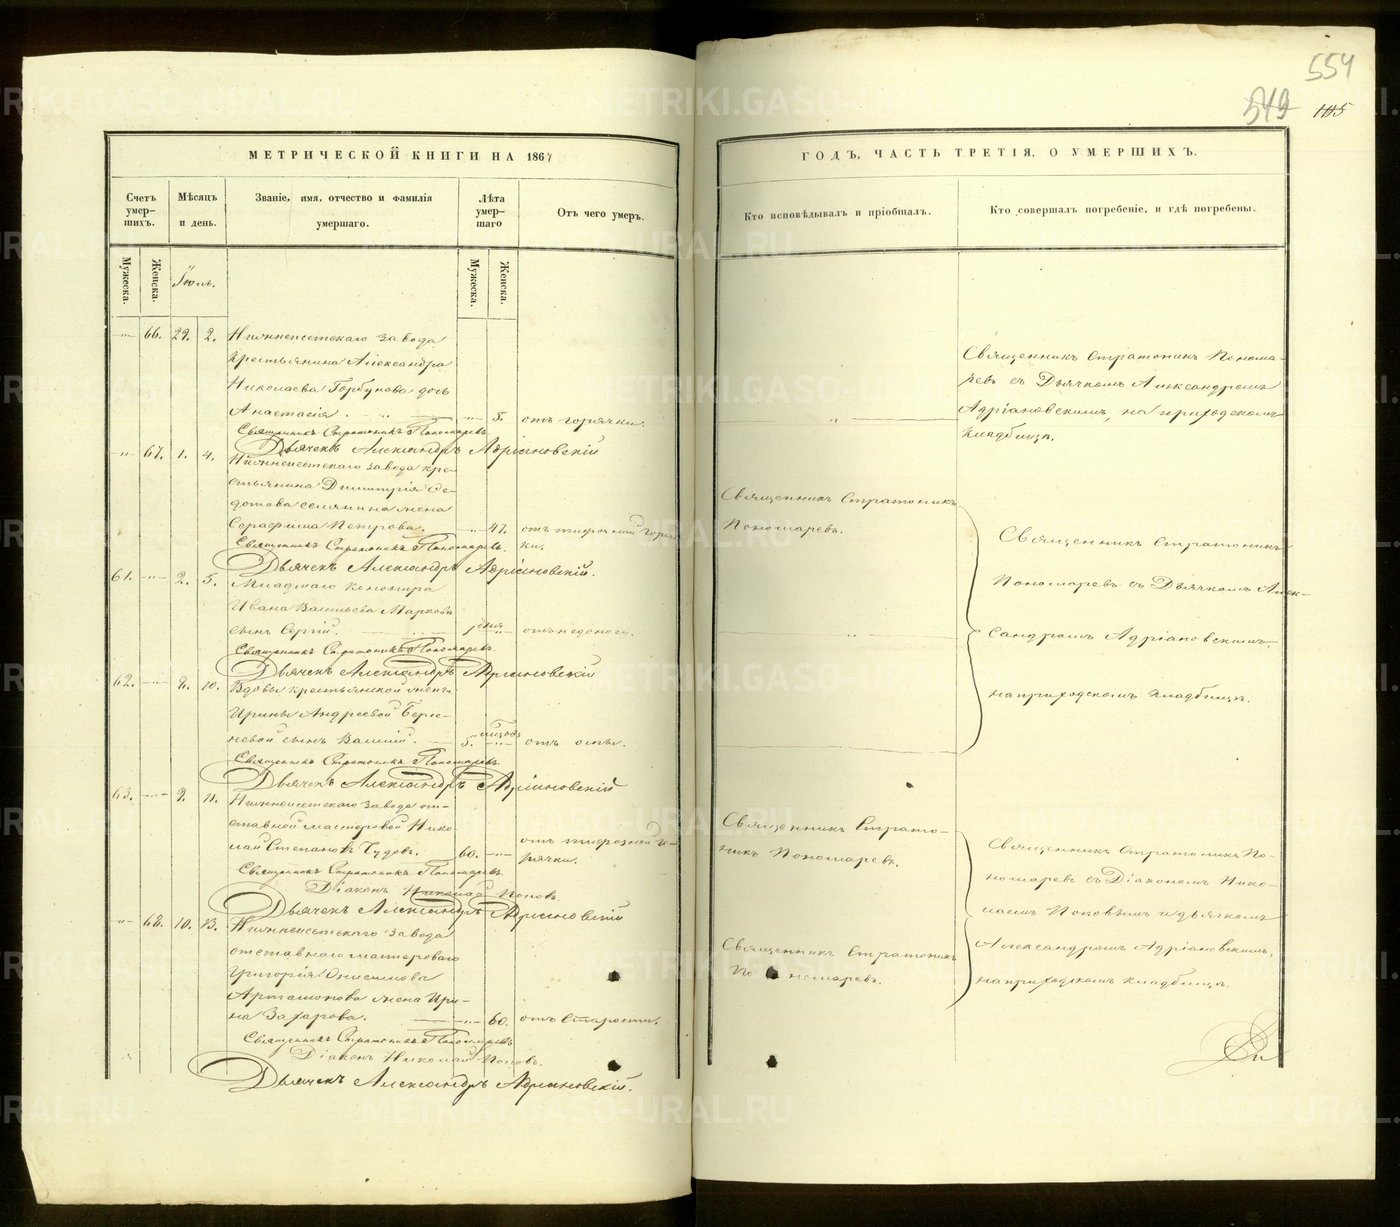 554
549 105
МЕТРИЧЕСКОЙ КНИГИ НА 1867
Счетъ умер-шихъ.
Мѣсяцъ и день.
Званіе, имя, отчество и фамилія умершаго.
Лѣта умер-шаго
Отъ чего умеръ.
Мужеска.
Женска.
Іюль.
Мужеска.
Женска.
66. 29. 2. Нижнеисетскаго завода
крестьянина Александра
Николаева Горбунова дочь
Анастасія 5. отъ горячки.
Священникъ Стратоникъ Пономаревъ
Дьячекъ Александръ Адріановскій
67. 1. 4. Нижнеисетскаго завода кре-
стьянина Димитрія Ѳе-
дотова жена
Серафима Петрова. 47. отъ тифозной горяч-
ки.
Священникъ Стратоникъ Пономаревъ.
Дьячекъ Александръ Адріановскій.
61. 2. 5. Младшаго
Ивана Васильева Маркова
сынъ Сергій. день отъ недоноса.
Священникъ Стратоникъ Пономаревъ.
Дьячекъ Александръ Адріановскій
62. 8. 10. Вдовы крестьянской жены
Ирины Андреевой
сынъ Василій. 5. отъ оспы.
Священникъ Стратоникъ Пономаревъ.
Дьячекъ Александръ Адріановскій
63. 9. 11. Нижнеисетскаго завода от-
ставной мастеровой Нико-
лай Степановъ Чудовъ. 60. отъ тифозной го-
рячки.
Священникъ Стратоникъ Пономаревъ.
Діаконъ Николай Поповъ.
Дьячекъ Александръ Адріановскій
68. 10. 13. Нижнеисетскаго завода
отставнаго мастероваго
Григорія Онисимова
Артамонова жена Ири-
на Захарова. 60. отъ старости.
Священникъ Стратоникъ Пономаревъ
Діаконъ Николай Поповъ.
Дьячекъ Александръ Адріановскій.
ГОДЪ, ЧАСТЬ ТРЕТІЯ, О УМЕРШИХЪ.
Кто исповѣдывалъ и пріобщалъ.
Кто совершалъ погребеніе, и гдѣ погребены.
Священникъ Стратоникъ Понома-
ревъ съ Дьячкомъ Александромъ
Адріановскимъ, на приходскомъ
кладбищѣ.
Священникъ Стратоникъ
Пономаревъ.
Священникъ Стратоникъ
Пономаревъ съ Дьячкомъ Алек-
сандромъ Адріановскимъ
на приходскомъ кладбищѣ.
Священникъ Страто-
никъ Пономаревъ.
Священникъ Стратоникъ По-
номаревъ съ Діакономъ Нико-
лаемъ Поповымъ и дьячкомъ
Александромъ Адріановскимъ,
на приходскомъ кладбищѣ.
Священникъ Стратоникъ
Пономаревъ.
METRIKI.GASO-URAL.RU